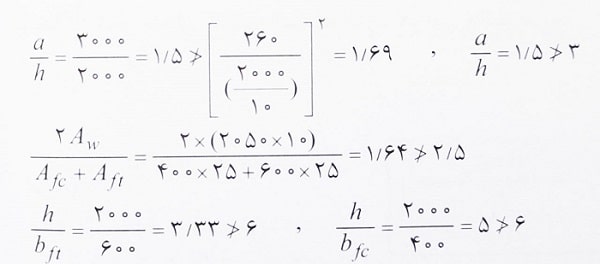 a/h = ۳۰۰۰/۲۰۰۰ = ۱/۵ ≯ [۲۶۰/(۲۰۰۰/۱۰)]^۲ = ۱/۶۹ , a/h = ۱/۵ ≯ ۳
۲A_w/(A_fc + A_ft) = ۲×(۲۰۵۰×۱۰)/(۴۰۰×۲۵+۶۰۰×۲۵) = ۱/۶۴ ≯ ۲/۵
h/b_ft = ۲۰۰۰/۶۰۰ = ۳/۳۳ ≯ ۶ , h/b_fc = ۲۰۰۰/۴۰۰ = ۵ ≯ ۶